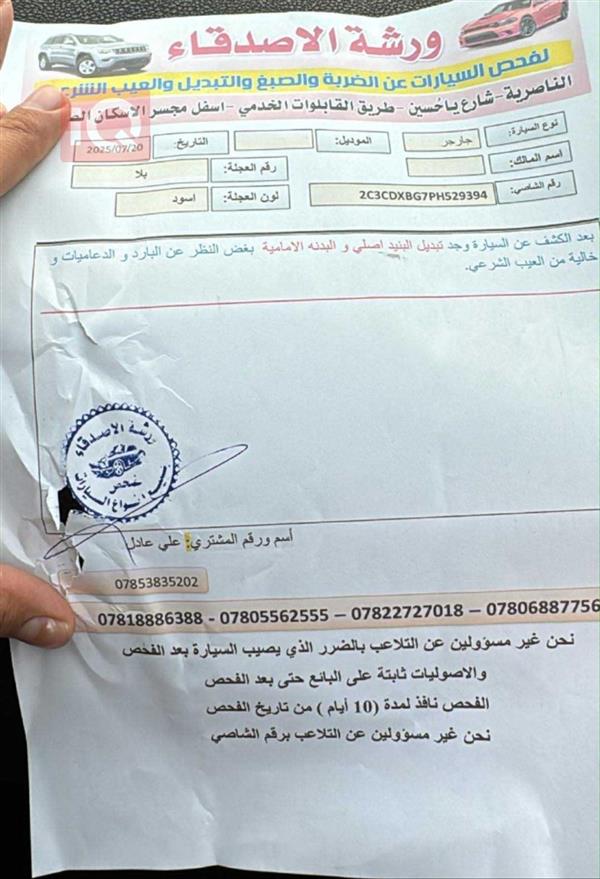 ورشة الاصدقاء
لفحص السيارات عن الضربة والصبغ والتبديل والعيب الشرعي
الناصرية - شارع ياحسين - طريق القابلوات الخدمي - اسفل مجسر الاسكان
نوع السيارة: جارجر الموديل: التاريخ: 2025/07/20
اسم المالك: رقم العجلة: بلا
رقم الشاصي: 2C3CDXBG7PH529394 لون العجلة: اسود
بعد الكشف عن السيارة وجد تبديل البنيد اصلي و البدنه الامامية بغض النظر عن البارد و الدعاميات و
خالية من العيب الشرعي.
ورشة الاصدقاء
فحص
جميع انواع السيارات
أسم ورقم المشتري: علي عادل
07853835202
07818886388 - 07805562555 – 07822727018 – 07806887756
نحن غير مسؤولين عن التلاعب بالضرر الذي يصيب السيارة بعد الفحص
والاصوليات ثابتة على البائع حتى بعد الفحص
الفحص نافذ لمدة (10 أيام ) من تاريخ الفحص
نحن غير مسؤولين عن التلاعب برقم الشاصي